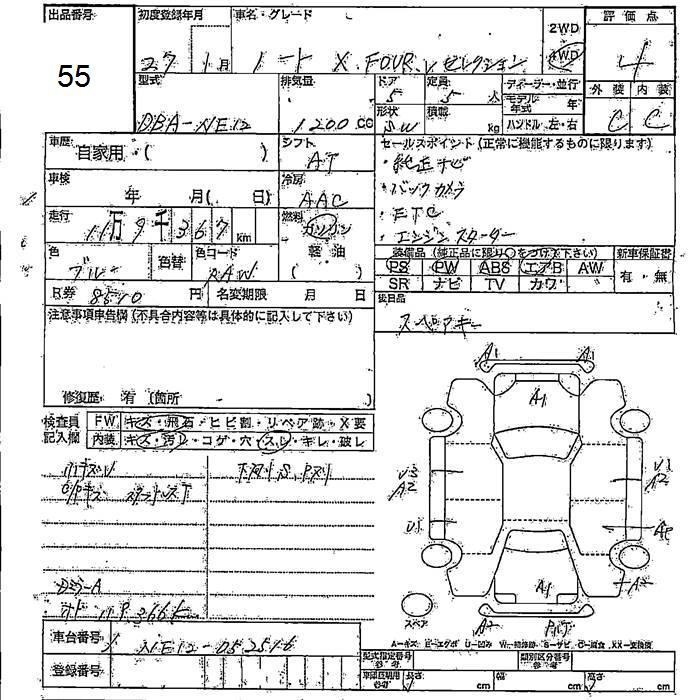 出品番号
55
初度登録年月
27 1月
車名・グレード
ノート X FOUR Vセレクション
2WD
4WD
評価点
4
外装 内装
C C
型式
DBA-NE12
排気量
1200 CC
ドア
5
定員
5 人
形状
SW
積載
kg
ディーラー・並行
モデル年式 年
ハンドル 左・右
車歴
自家用・( )
シフト
AT
車検
年 月( 日)
冷房
AAC
走行
11万9千367 km
燃料
ガソリン
軽・油
( )
色
ブルー
色替
色コード
RAW
R券 8590 円
名変期限 月 日
セールスポイント(正常に機能するものに限ります)
・純正ナビ
・バックカメラ
・ETC
・エンジンスターター
装備品(純正品に限り○をつけて下さい)
PS PW ABS エアB AW
SR ナビ TV カワ
新車保証書
有・無
後日品
スペアキー
注意事項申告欄(不具合内容等は具体的に記入して下さい)
修復歴 有 (箇所 )
検査員
記入欄
FW キズ・飛石・ヒビ割・リペア跡・X要
内装 キズ・汚れ・コゲ・穴・スレ・キレ・破レ
下回りS、
DミラーA
A1 A1
A1
A2
A2
A1
A2
スペア
A-キズ E-エクボ U-凹み W-補修跡 S-サビ C-腐食 XX-交換済
車台番号
NE12-052516
登録番号
型式指定番号
参考
類別区分番号
参考
長さ cm
幅 cm
高さ cm